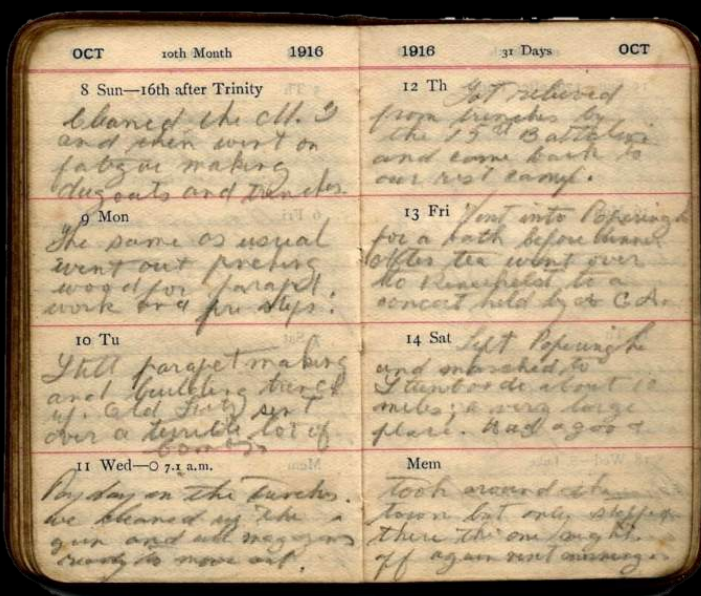 OCT 10th Month 1916
8 Sun—16th after Trinity
Cleaned the M. G
and then went on
fatgue making
dugouts and trenches.
9 Mon
The same as usual
went out
wood for parapet
work and fire steps.
10 Tu
Still parapet making
and building trench
up. Old Fritz sent
over a terrible lot of
bombs
11 Wed—O 7.1 a.m.
day in the trenches.
we cleaned up the
gun and all magazines
ready to move out.
1916 31 Days OCT
12 Th Got relieved
from trenches by
the 15th Battalion
and came back to
our rest camp.
13 Fri Went into Poperinghe
for a bath before dinner
After tea went over
to to a
concert held by
14 Sat Left Poperinghe
and marched to
Steenvoorde about 10
miles; a very large
place. Had a good
Mem
look around the
town but only stopped
there the one night
off again next morning.